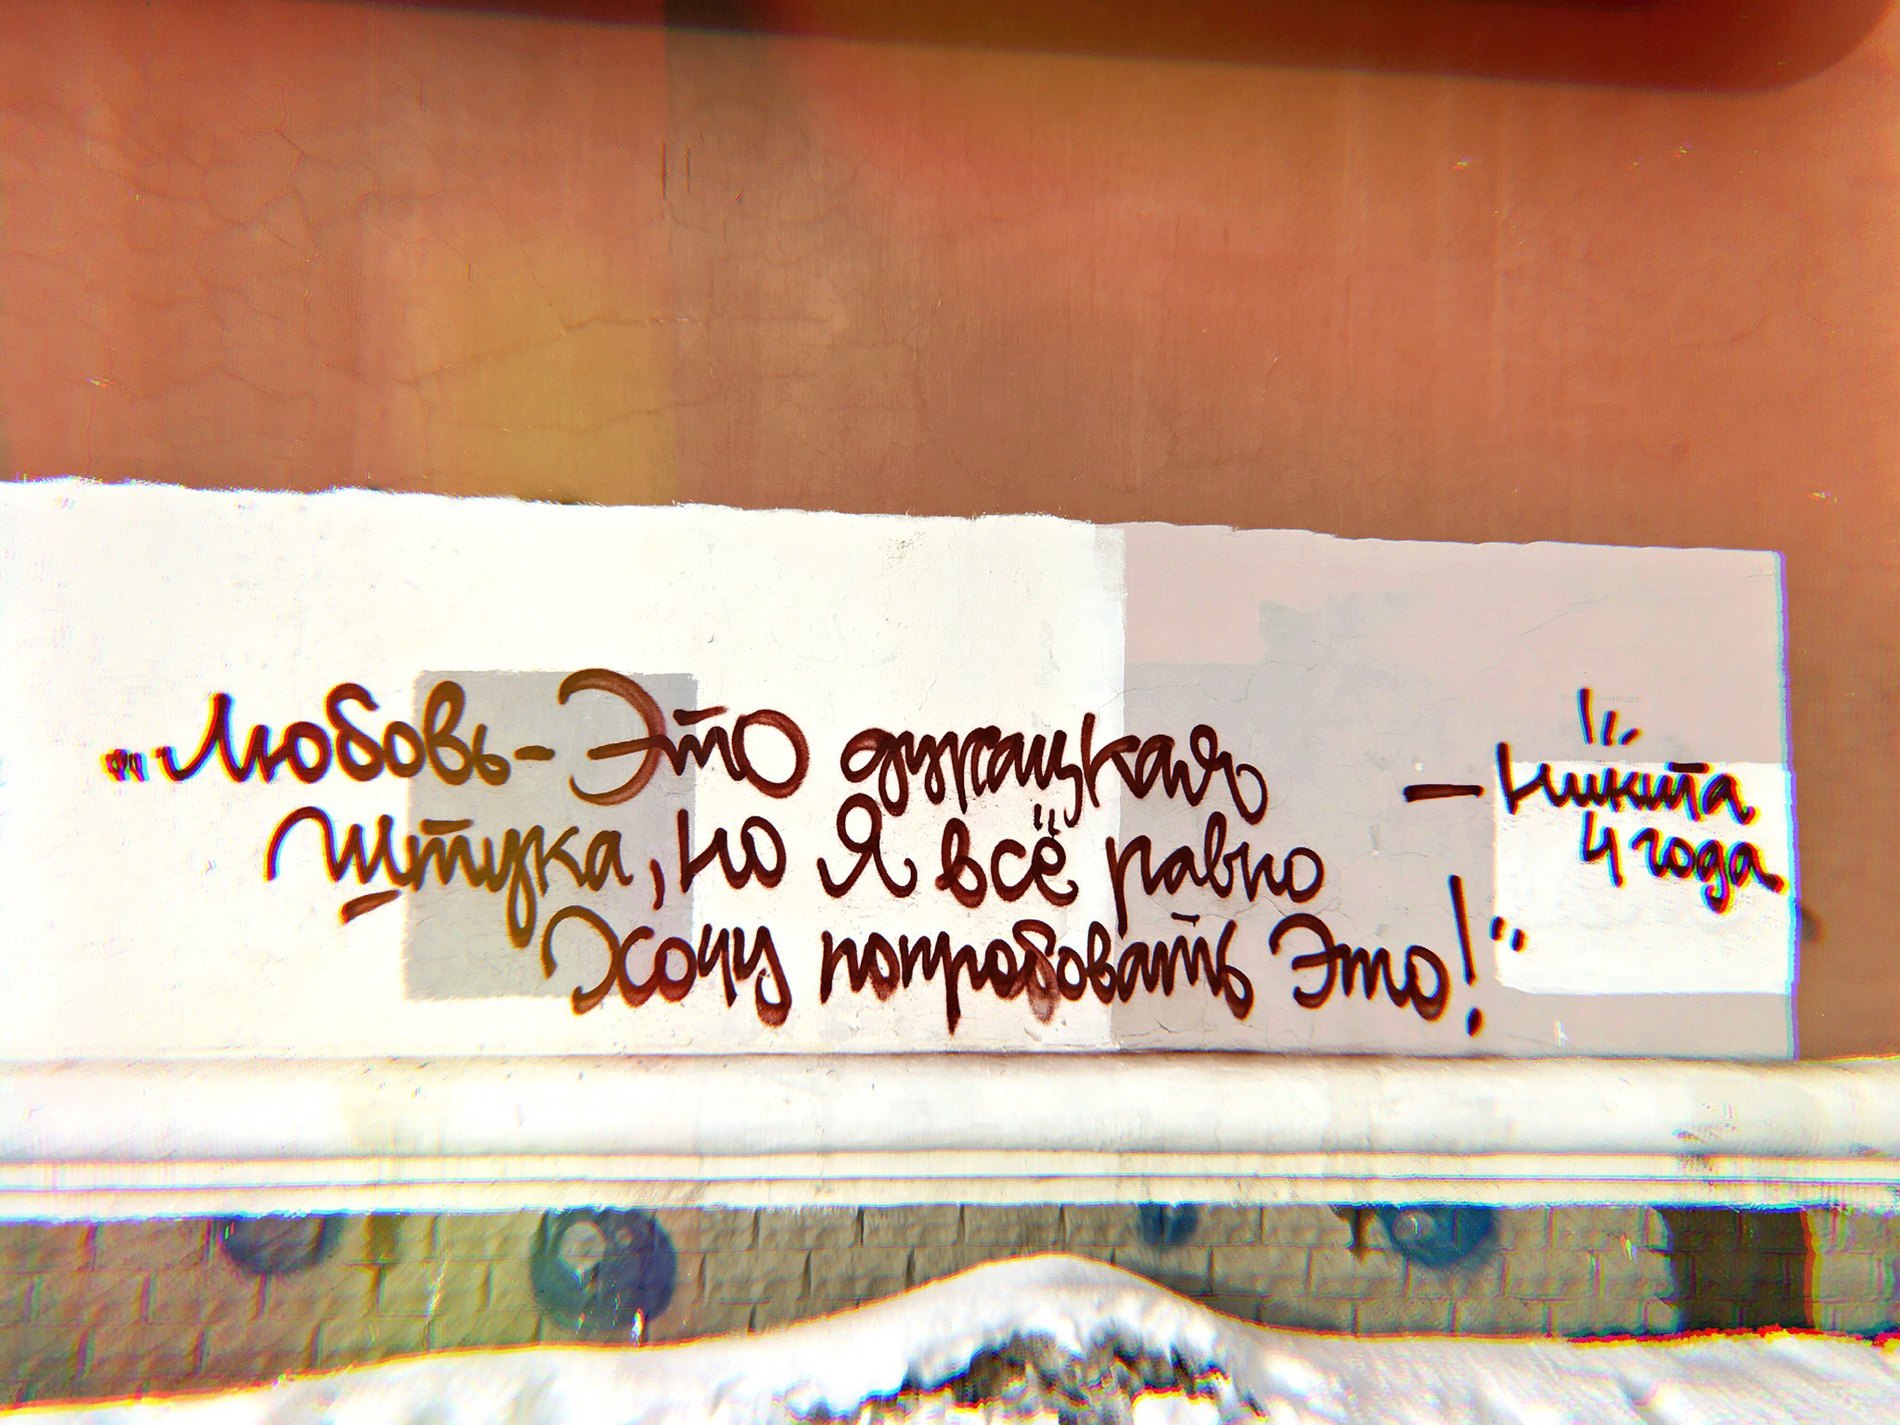 "Любовь - Это дурацкая
Штука, но Я всё равно
Хочу попробовать Это!"
— Никита
4 года